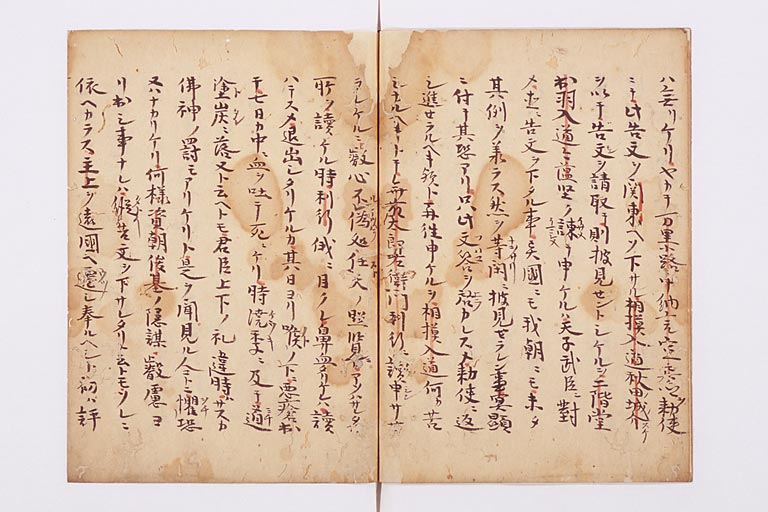 ハ云リケリヤカテ万里小路中納言宣房ヲ勅使
ニテ此告文ヲ関東ヘソ下サル相模入道秋田城介
ヲ以テ告文ヲ請取テ則披見セントシケルヲ二階堂
出羽入道々薀堅ク諫テ申ケルハ天子武臣ニ對
メ直ニ告文ヲ下タル事異國ニモ我朝ニモ未タ
其例ヲ承ラス然ヲ等閑ニ披見セラレン事冥顕
ニ付テ其恐アリ只此文箱ヲ啓カレスメ勅使ニ返
シ進セラルヘキ歟ト再往申ケルヲ相模入道何カ苦
シカルヘキトテ斎藤太郎左衛門利行ニ讀申サセ
ラレケルニ叡心不偽処任天ノ照覧アソハサレタル
所ヲ讀ケル時利行俄ニ目クレ鼻血タリケレハ讀
ハテスメ退出シタリケルカ其日ヨリ喉ノ下ニ悪瘡出
テ七日カ中ニ血ヲ吐テ死ニケリ時澆季ニ及テ道
塗炭ニ落ヌト云ヘトモ君臣上下ノ礼違時ハサスカ
佛神ノ罰モアリケリト是ヲ聞見ル人コトニ懼恐
ヌハナカリケリ何様資朝俊基ノ隠謀叡慮ヨ
リ出シ事ナレハ縦告文ヲ下サレタリト云トモソレニ
依ヘカラス主上ヲ遠國ヘ遷シ奉ルヘシト初ハ評